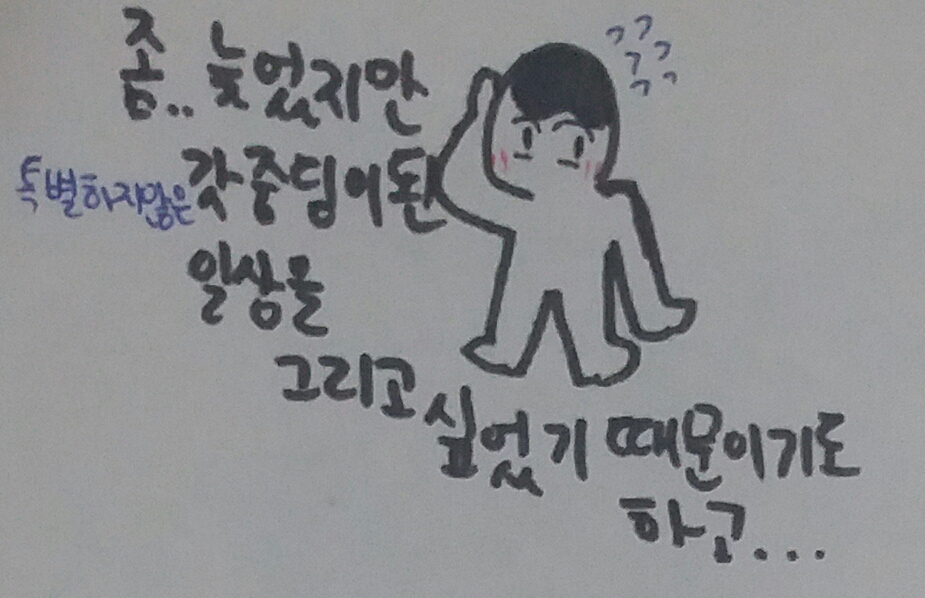 좀.. 늦었지만
특별하지않은 갓중딩이된
일상을
그리고
싶었기 때문이기도
하고...